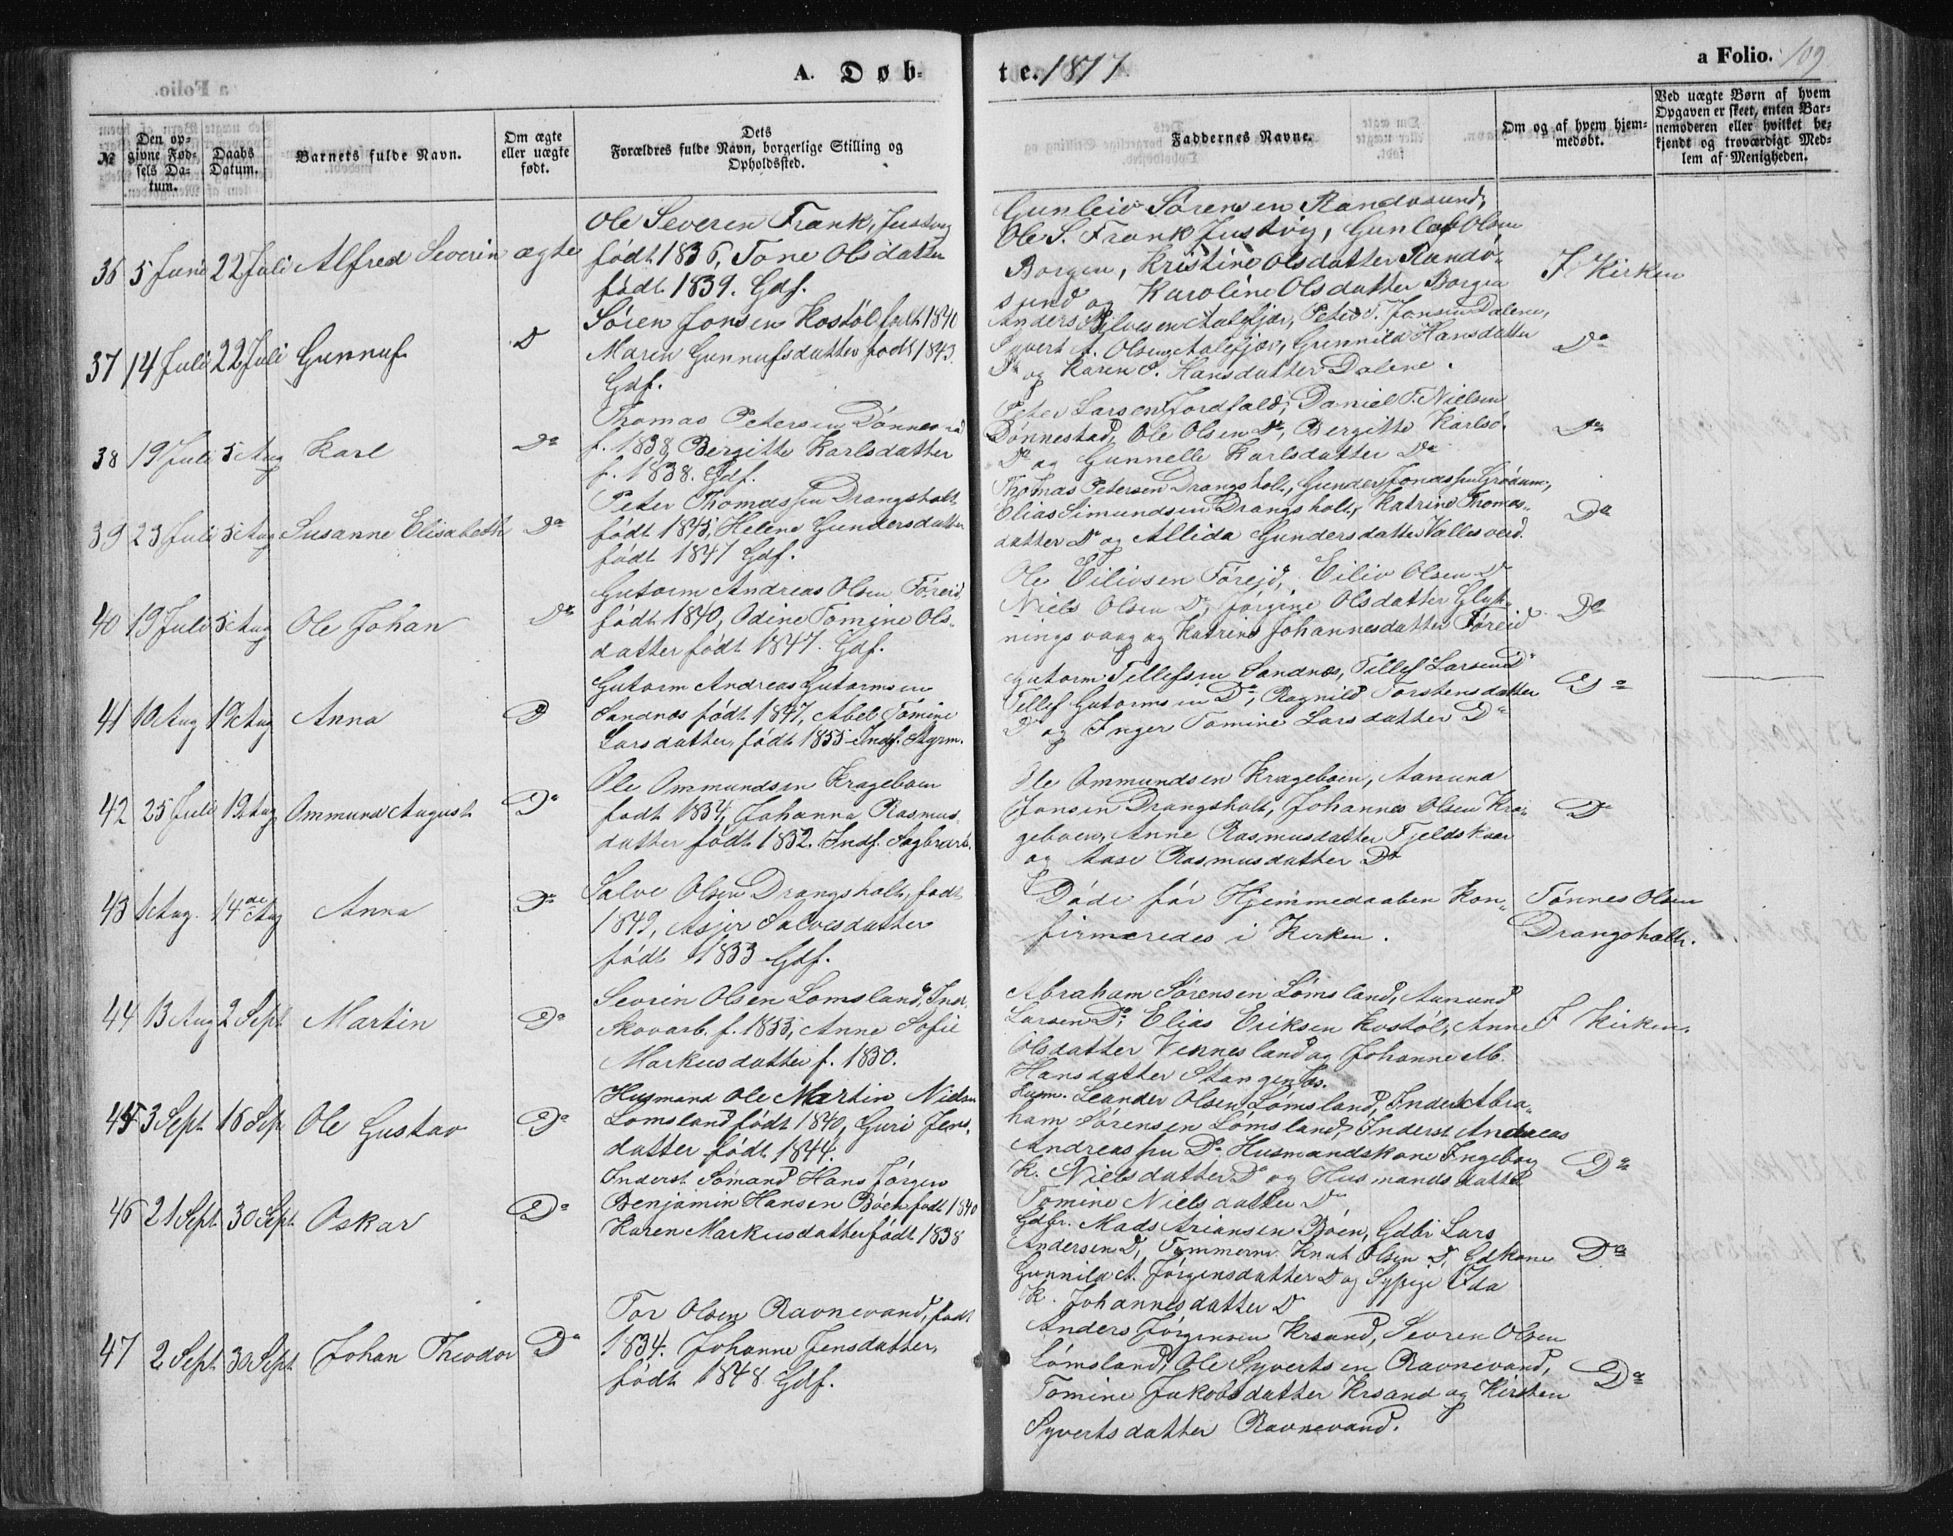 A. Døb-
te. 1877.
a Folio. 109
№
Den op-
givne Fød-
sels Da-
tum.
Daabs
Datum.
Barnets fulde Navn.
Om ægte
eller uægte
født.
Dets
Forældres fulde Navn, borgerlige Stilling og
Opholdssted.
Faddernes Navne.
Om og af hvem hjem-
medøbt.
Ved uægte Børn af hvem
Opgaven er skeet, enten Bar-
nemoderen eller hvilket be-
kjendt og troværdigt Med-
lem af Menigheden.
36 5 Juni 22 Juli Alfred Severin ægte
Ole Severen Frank, Justvig
født 1836, Tone Olsdatter
født 1839. Gdf.
Gunleiv Sørensen Randøsund,
Ole S. Frank Justvig, Gunlef Olsen
Borgen, Kristine Olsdatter Randø-
sund og Karoline Olsdatter Borgen
I Kirken
37 14 Juli 22 Juli Gunnuf D
Søren Jonsen Kostøl født 1840
Maren Gunnufsdatter født 1843.
Gdf.
Anders Aalefjær, Peter T. Jonsen Dalene,
Syvert A. Olsen Aalefjær, Gunnild Hansdatter
Do og Karen S. Hansdatter Dalene.
Do
38 19 Juli 5 Aug Karl Do
Thomas Petersen Dønnestad
f. 1838, Bergitte Karlsdatter
f. 1838. Gdf.
Peter Larsen Jordfald, Daniel T. Nielsen
Dønnestad, Ole Olsen Do, Bergitte Karlsd.
Do og Gunnelle Karlsdatter Do
Do
39 23 Juli 5 Aug Susanne Elisabeth Do
Peter Thomassen Drangsholt
født 1845, Helene Gundersdatter
født 1847 Gdf.
Thomas Petersen Drangsholt, Gunder Jonassen Grødum,
Elias Simundsen Drangsholt, Katrine Thomas-
datter Do og Allida Gundersdatter Vallesverd.
Do
40 19 Juli 5 Aug Ole Johan Do
Gutorm Andreas Olsen Føreid
født 1840, Odine Tomine Ols-
datter født 1847. Gdf.
Ole Eilivsen Førejd, Eiliv Olsen Do
Niels Olsen Do, Jørgine Olsdatter
ningsvaag og Katrine Johannesdatter Føreid
Do
41 10 Aug 19 Aug Anna D
Gutorm Andreas Gutormsen
Sandnes født 1847, Abel Tomine
Larsdatter, født 1855 Indf. Styrm.
Gutorm Tellefsen Sandnæs, Tellef Larsen Do
Tellef Gutormsen Do, Ragnild Torstensdatter
Do og Inger Tomine Larsdatter Do
Do
42 25 Juli 19 Aug Ommund August Do
Ole Ommundsen Krageboen
født 1834, Johanna Rasmus-
datter født 1832. Indf. Sagbrarb.
Ole Ommundsen Krageboen, Aanund
Jonsen Drangsholt, Johannes Olsen Kra-
geboen, Anne Rasmusdatter Fjeldskaar
og Aase Rasmusdatter Do
Do
43 1 Aug. 14de Aug Anna Do
Salve Olsen Drangsholt, født
1849, Asjer Salvesdatter
født 1833 Gdf.
Døde før Hjemmedaaben kon-
firmeredes i Kirken.
Tønnes Olsen
Drangsholt.
44 13 Aug 2 Sept Martin Do
Sevrin Olsen Lømsland, Inder.
Skovarb. f. 1855, Anne Sofie
Markusdatter f. 1850.
Abraham Sørensen Lømsland, Aanund
Larsen Do, Elias Eriksen Kostøl, Anne
Olsdatter Vennesland og Johanne M.
Hansdatter Stangenes.
I Kirken.
45 3 Sept 16 Sep Ole Gustav Do
Husmand Ole Martin Nielsen
Lømsland født 1840, Guri Jens-
datter født 1844.
Husm. Leander Olsen Lømsland, Inderst Abra-
ham Sørensen Lømsland, Inderst Andreas
Andreassen Do Husmandskone Ingeborg
K. Nielsdatter Do og Husmandsdatter
Tomine Nielsdatter Do
Do
46 21 Sept 30 Sept. Oskar Do
Inderst Sømand Hans Jørgen
Benjamin Hansen Bøen født 1840
Karen Markusdatter født 1838
Gdbr. Mads Ariansen Bøen, Gdbr Lars
Andersen D, Tømmerm. Knut Olsen D, Gdkone
Gunnild A. Jørgensdatter D og Sypige Ida
K. Johannesdatter D
Do
47 2 Sept 30 Sept. Johan Theodor Do
Tor Olsen Ravnevand, født
1834. Johanne Jensdatter,
født 1848. Gdf.
Anders Jørgensen Krsand, Sevren Olsen
Lømsland, Ole Syvertsen Ravnevand,
Tomine Jakobsdatter Krsand og Kirsten
Syvertsdatter Ravnevand.
Do